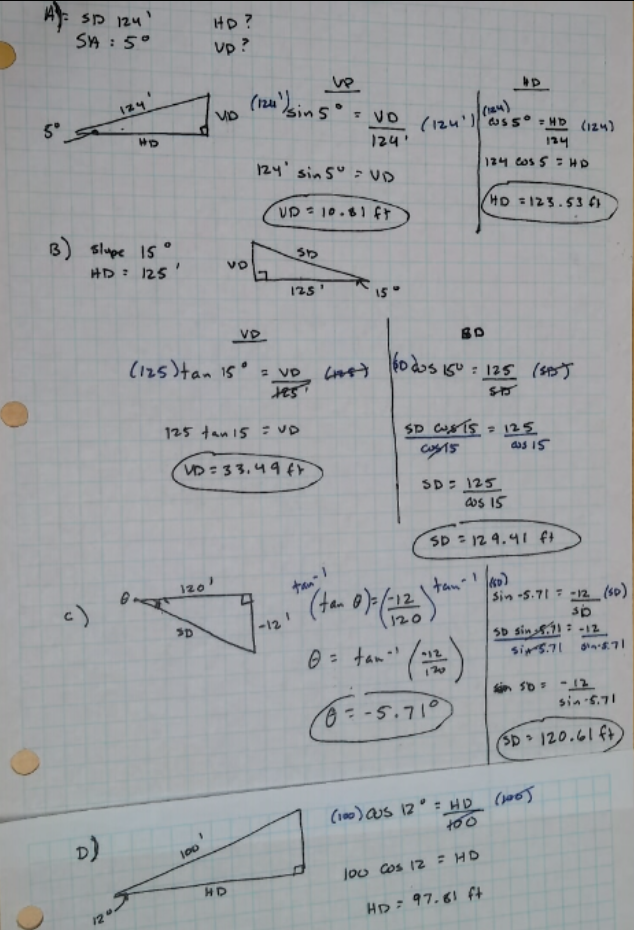 A) = SD 124' HD?
SA : 5° VD?
VD
HD
124'
5°
VD
HD
(124') sin 5° = VD/124' (124')
124' sin 5° = VD
VD = 10.81 ft
(124) cos 5° = HD/124 (124)
124 cos 5 = HD
HD = 123.53 ft
B) Slope 15°
HD = 125'
VD
SD
125'
15°
VD
SD
(125) tan 15° = VD/125' (125)
125 tan 15 = VD
VD = 33.49 ft
(SD) cos 15° = 125/SD (SD)
SD cos 15/cos 15 = 125/cos 15
SD = 125/cos 15
SD = 129.41 ft
C)
θ
120'
SD
-12'
tan⁻¹ (tan θ) = (-12/120) tan⁻¹
θ = tan⁻¹ (-12/120)
θ = -5.71°
(SD) sin -5.71 = -12/SD (SD)
SD sin -5.71/sin -5.71 = -12/sin -5.71
SD = -12/sin -5.71
SD = 120.61 ft
D)
100'
HD
12°
(100) cos 12° = HD/100 (100)
100 cos 12 = HD
HD = 97.81 ft